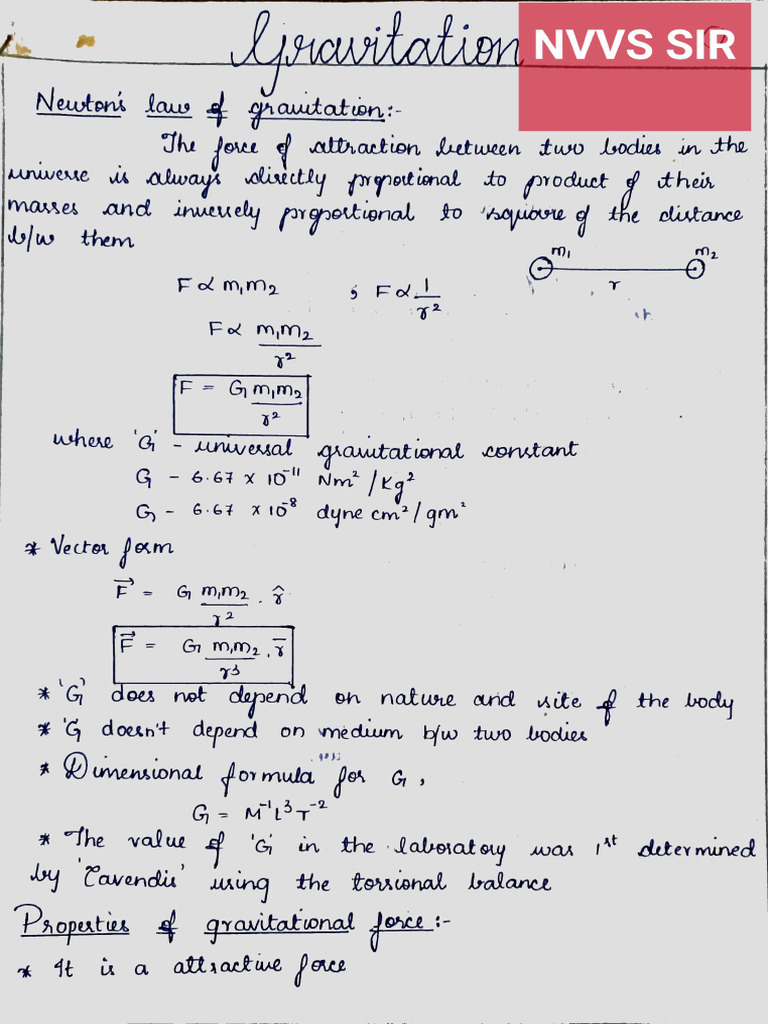 Gravitation
NVVS SIR
Newton's law of gravitation:-
The force of attraction between two bodies in the
universe is always directly proportional to product of their
masses and inversely proportional to square of the distance
b/w them
m₁ m₂
r
F ∝ m₁m₂ ; F ∝ 1/r²
F ∝ m₁m₂/r²
F = G m₁m₂/r²
where 'G' - universal gravitational constant
G - 6.67 × 10⁻¹¹ Nm²/Kg²
G - 6.67 × 10⁻⁸ dyne cm²/gm²
* Vector form
F⃗ = G m₁m₂/r² . r̂
F⃗ = G m₁m₂/r³ . r̅
* 'G' does not depend on nature and site of the body
* 'G doesn't depend on medium b/w two bodies
* Dimensional formula for G,
G = M⁻¹L³T⁻²
* The value of 'G' in the laboratory was 1st determined
by 'Cavendis' using the torsional balance
Properties of gravitational force:-
* It is a attractive force